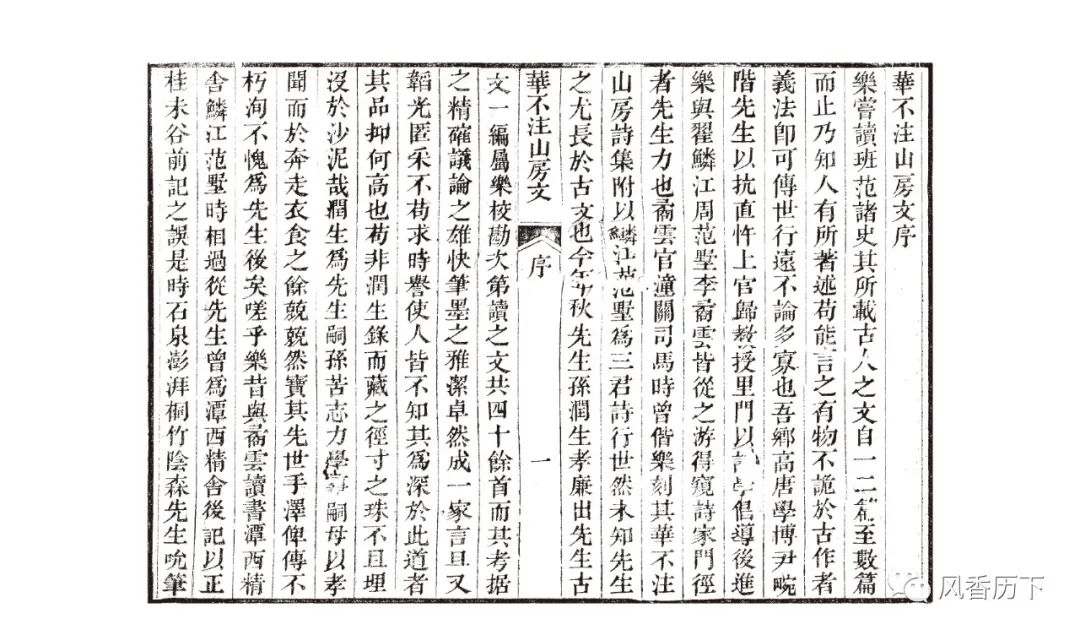 華不注山房文序
樂嘗讀班范諸史其所載古人之文自一二篇至數篇
而止乃知人有所著述苟能言之有物不詭於古作者
義法卽可傳世行遠不論多寡也吾鄉高唐學博尹畹
階先生以抗直忤上官歸敎授里門以詩學倡導後進
樂與翟鱗江周范墅李雲皆從之游得窺詩家門徑
者先生力也雲官潼關司馬時曾偕樂刻其華不注
山房詩集附以鱗江范墅爲三君詩行世然未知先生
之尤長於古文也今年秋先生孫潤生孝廉出先生古
華不注山房文 序 一
文一編屬樂校勘次第讀之文共四十餘首而其考据
之精確議論之雄快筆墨之雅潔卓然成一家言且又
韜光匿采不苟求時譽使人皆不知其爲深於此道者
其品抑何高也苟非潤生錄而藏之徑寸之珠不且埋
沒於沙泥哉潤生爲先生嗣孫苦志力學事嗣母以孝
聞而於奔走衣食之餘兢兢然寶其先世手澤俾傳不
朽洵不愧爲先生後矣嗟乎樂昔與雲讀書潭西精
舍鱗江范墅時相過從先生曾爲潭西精舍後記以正
桂未谷前記之誤是時石泉澎湃桐竹陰森先生吮筆
风香历下